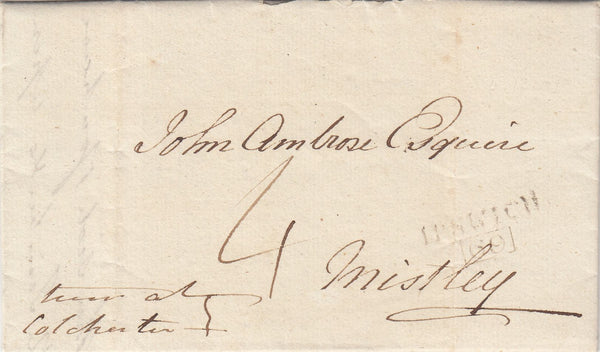 John Ambrose Esquire
4
IPSWICH
Mistley
turn at
Colchester